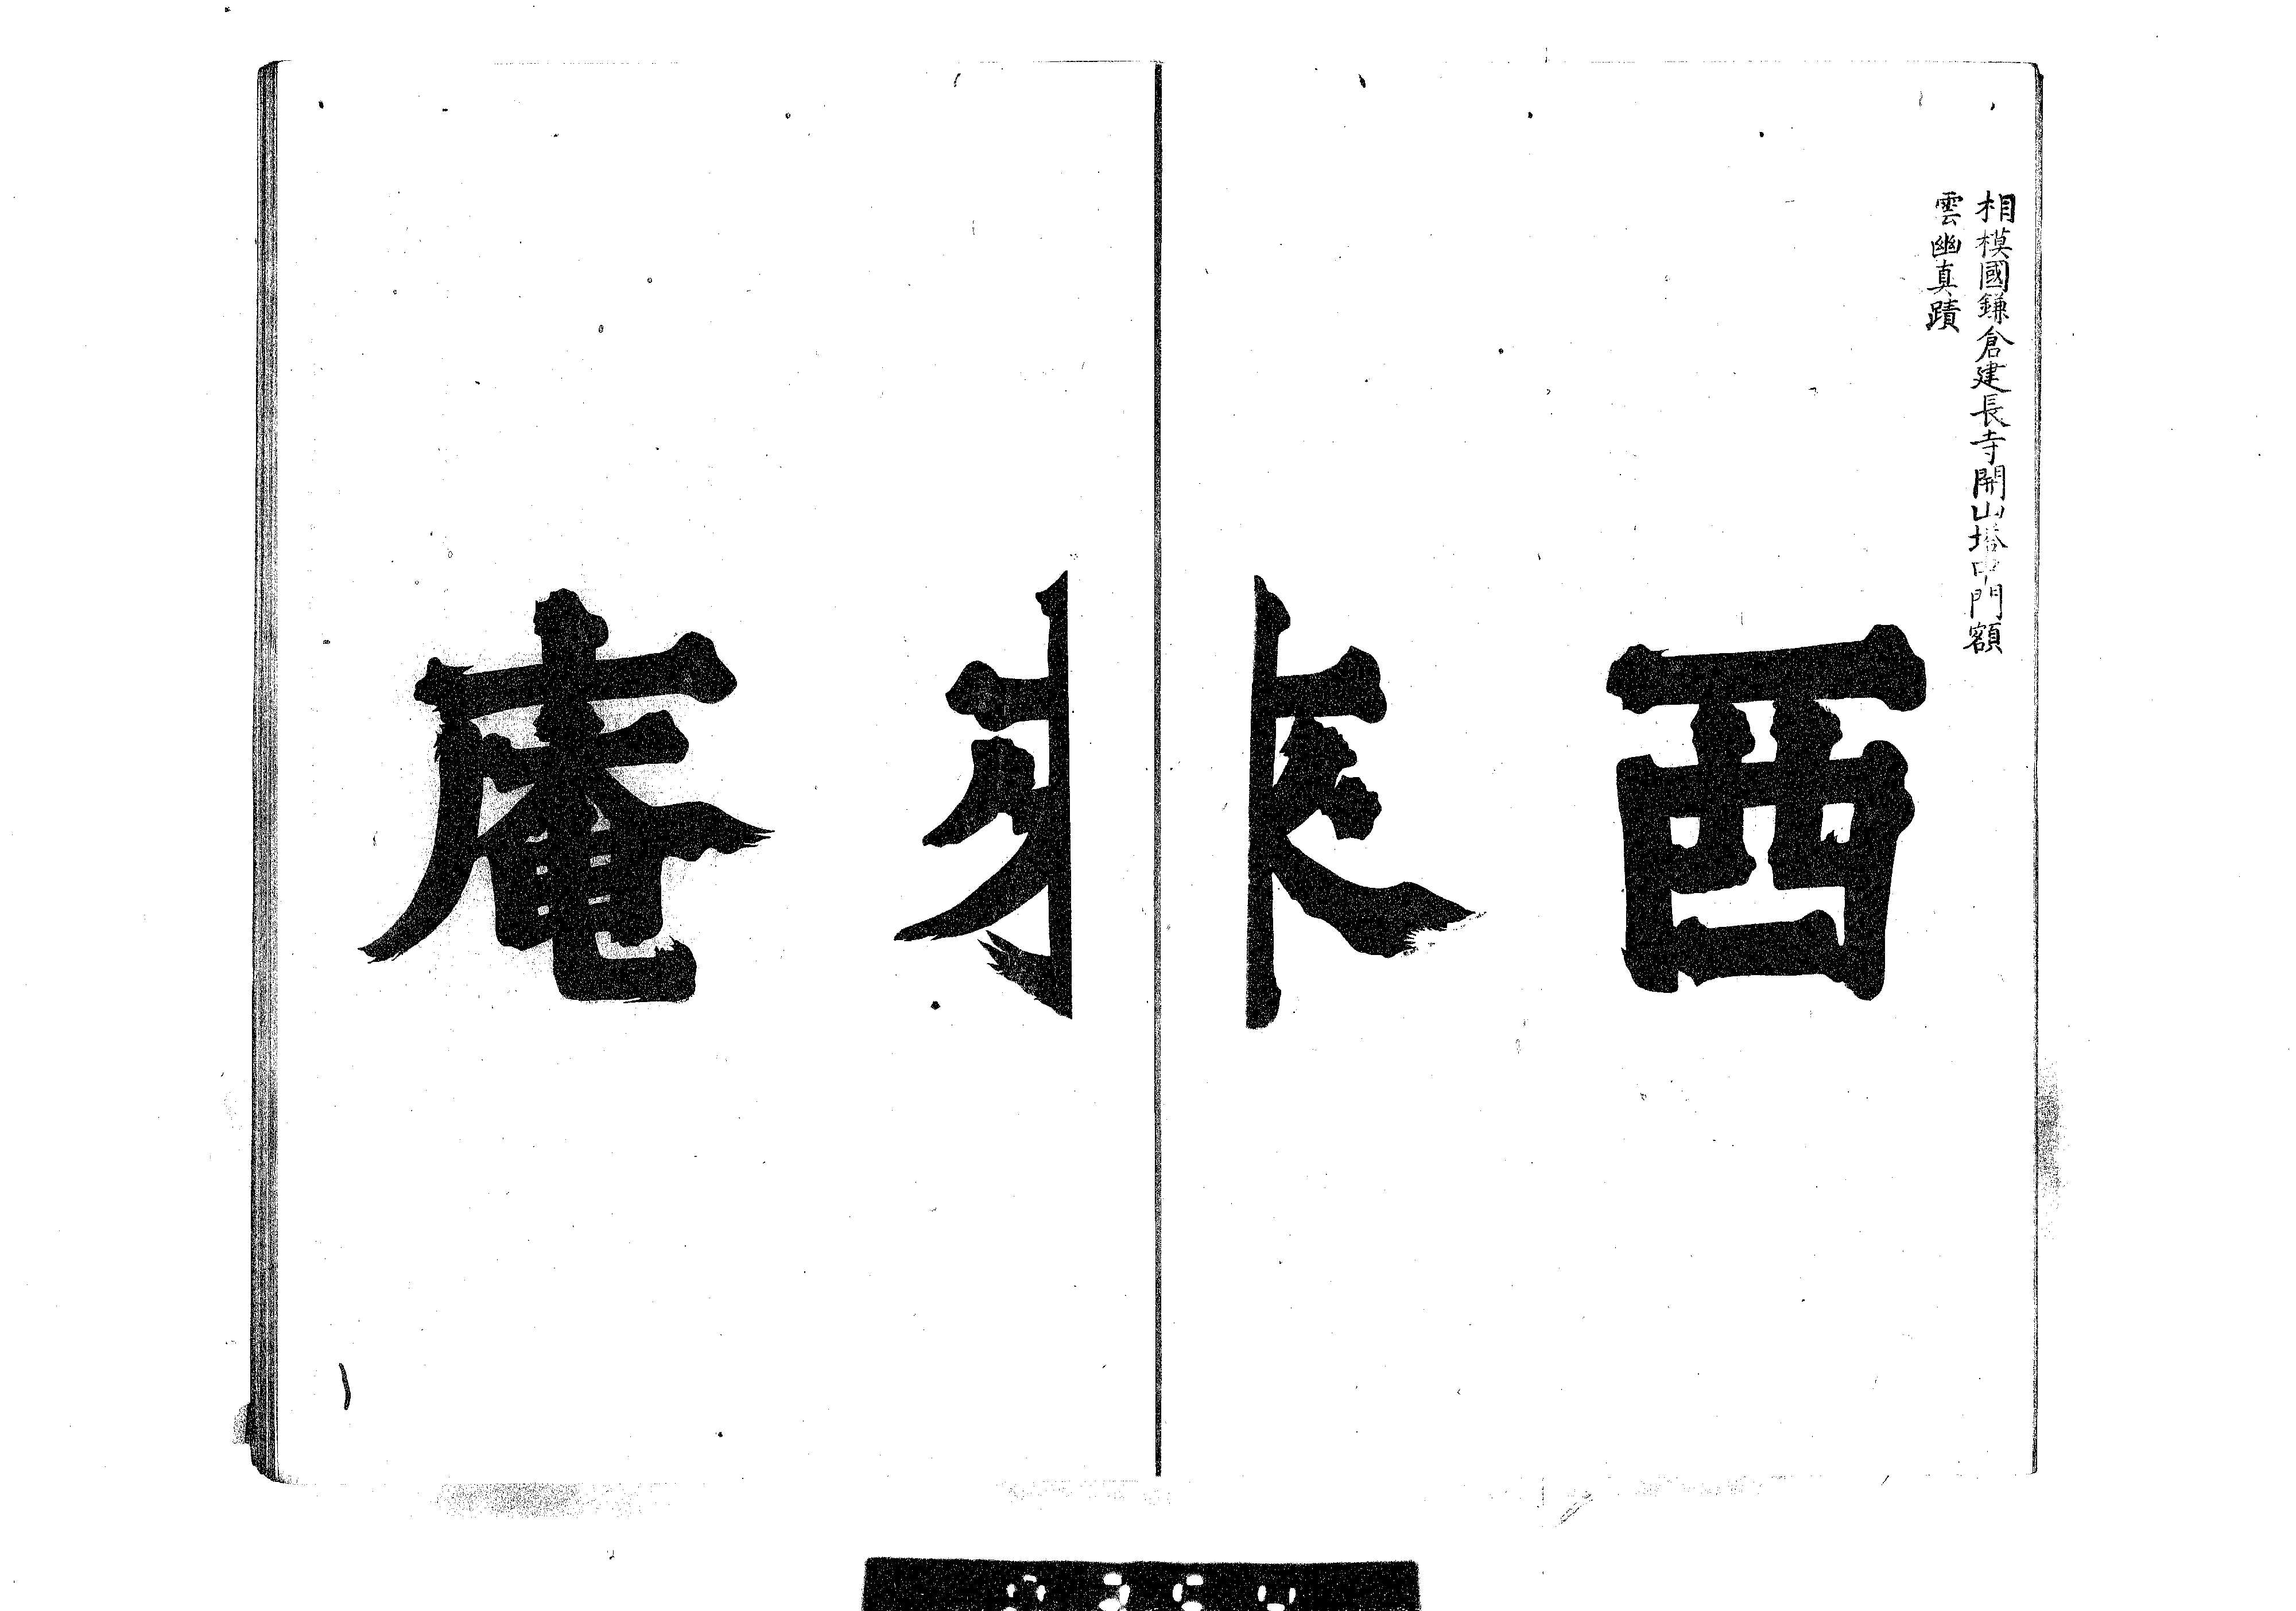 相模國鎌倉建長寺開山塔中門額
雲幽真蹟
西來庵